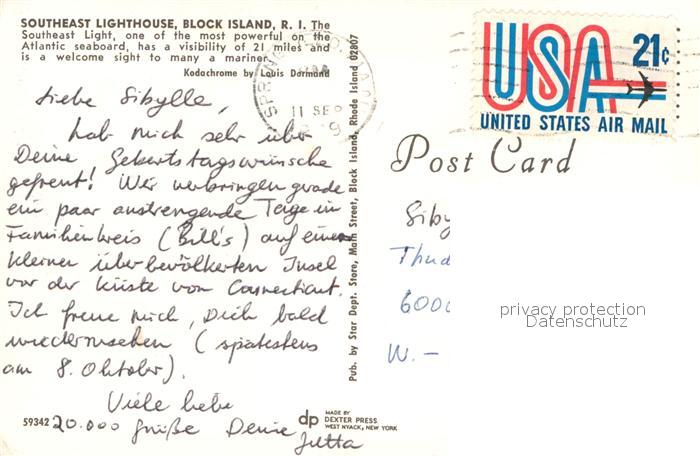 SOUTHEAST LIGHTHOUSE, BLOCK ISLAND, R. I. The
Southeast Light, one of the most powerful on the
Atlantic seaboard, has a visibility of 21 miles and
is a welcome sight to many a mariner.
Kodachrome by Louis Dormand
Liebe Sibylle,
hab mich sehr über
Deine Geburtstagswünsche
gefreut! Wir verbringen gerade
ein paar anstrengende Tage im
Familienkreis (Bill's) auf einer
kleinen überbevölkerten Insel
vor der Küste von Connecticut.
Ich freue mich, Dich bald
wiederzusehen (spätestens
am 8. Oktober).
Viele liebe
20.000 Grüße Deine
Jutta
59342
Pub. by Star Dept. Store, Main Street, Block Island, Rhode Island 02807
dp
MADE BY
DEXTER PRESS
WEST NYACK, NEW YORK
11 SEP
USA 21¢
UNITED STATES AIR MAIL
Post Card
Siby
Thud
600
W. –
privacy protection
Datenschutz